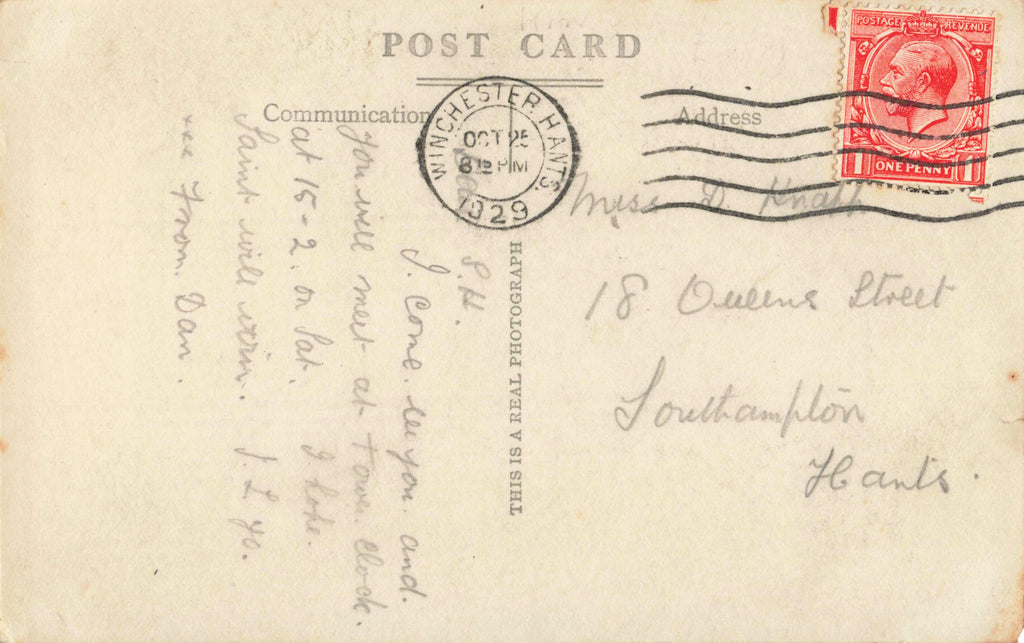 POST CARD
Communication
Address
POSTAGE REVENUE
1 ONE PENNY 1
WINCHESTER. HANTS.
OCT 25
8 15 PM
1929
THIS IS A REAL PHOTOGRAPH
Miss D. Knapp
18 Queens Street
Southampton
Hants.
S.H.
I. Come. see you. and.
you will meet at Tower. Clock.
at 15-2. on Sat. I hope.
Saint will win. I. L yo.
xxx From. Dan.